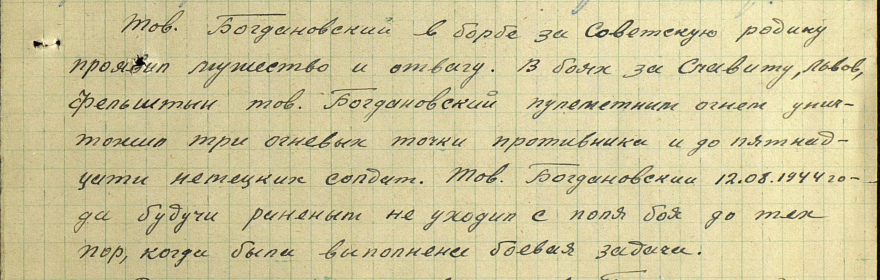 Тов. Богдановский в борбе за Советскую родину
проявил мужество и отвагу. В боях за Славиту, Львов,
Фельштын тов. Богдановский пулеметним огнем унич-
тожил три огневых точки противника и до пятнад-
цати немецких солдат. Тов. Богдановский 12.08.1944 го-
да будучи раненым не уходил с поля боя до тех
пор, когда была выполнена боевая задача.